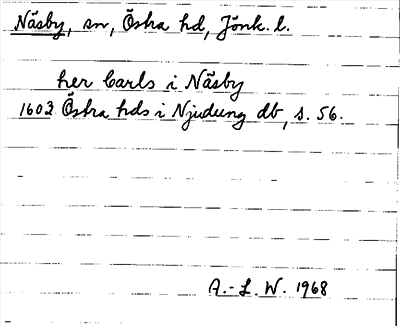 Näsby, sn, Östra hd, Jönk. l.
her Carls i Näsby
1603 Östra hds i Njudung db, s. 56.
A.-L. W. 1968